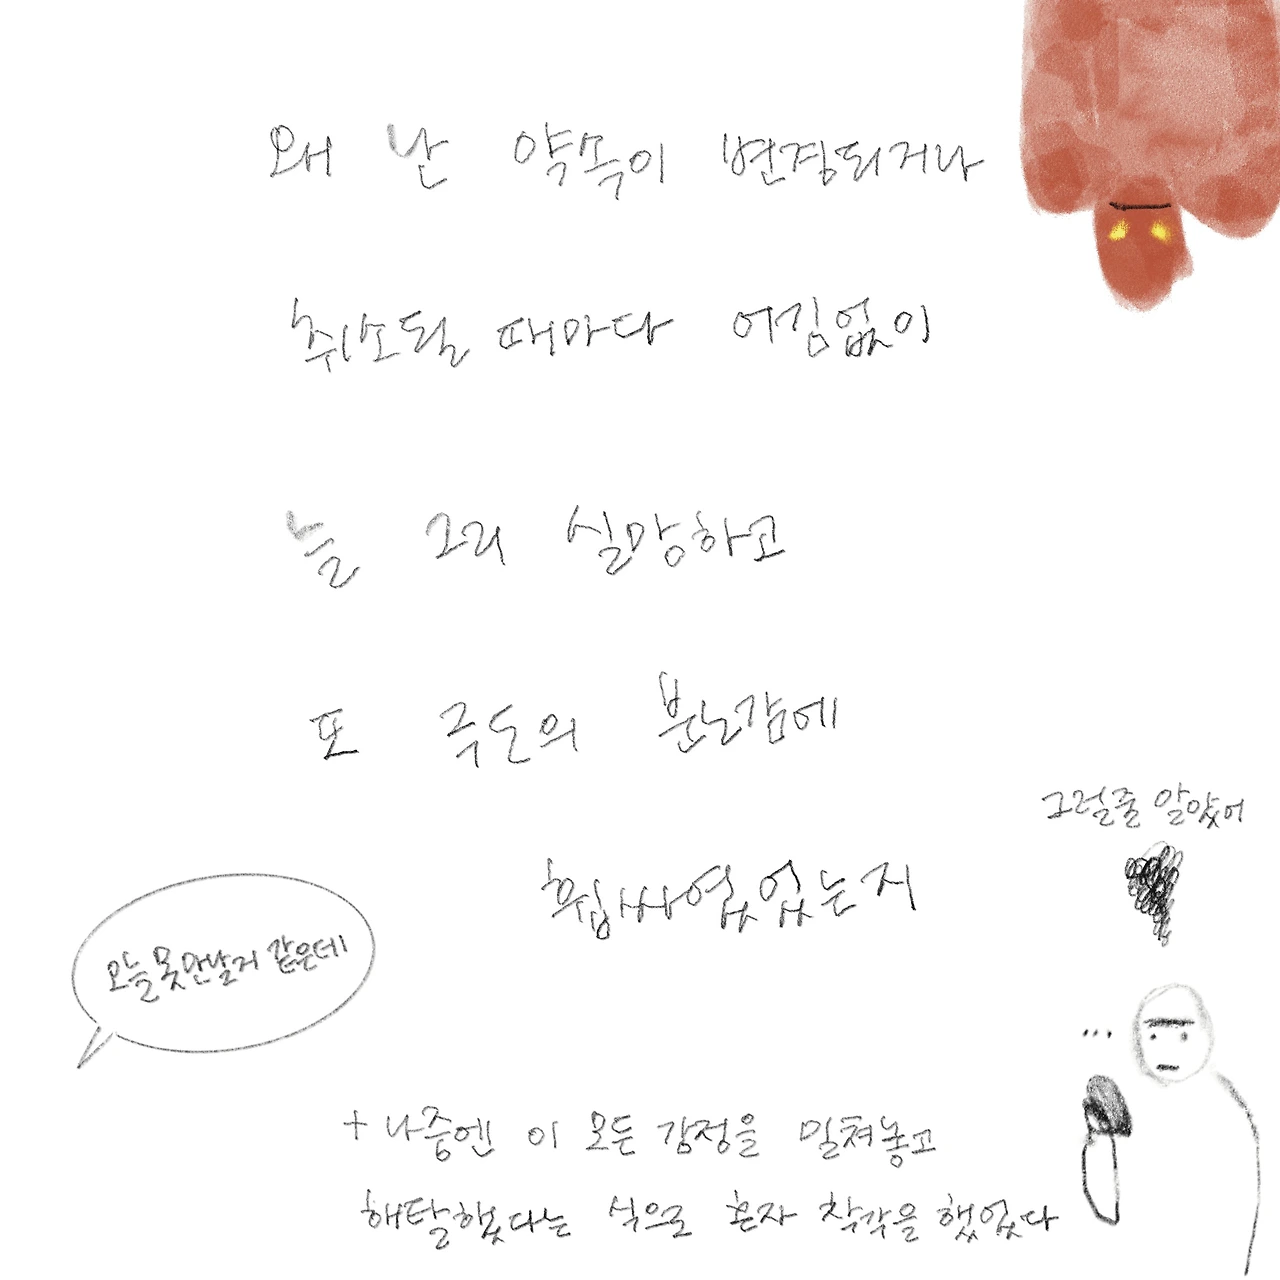 왜 난 약속이 변경되거나
취소될 때마다 어김없이
늘 그리 실망하고
또 극도의 분노감에
휩싸였었는지
그럴줄 알았어
오늘 못 만날거 같은데
...
+ 나중엔 이 모든 감정을 밀쳐놓고
해탈했다는 식으로 혼자 착각을 했었다